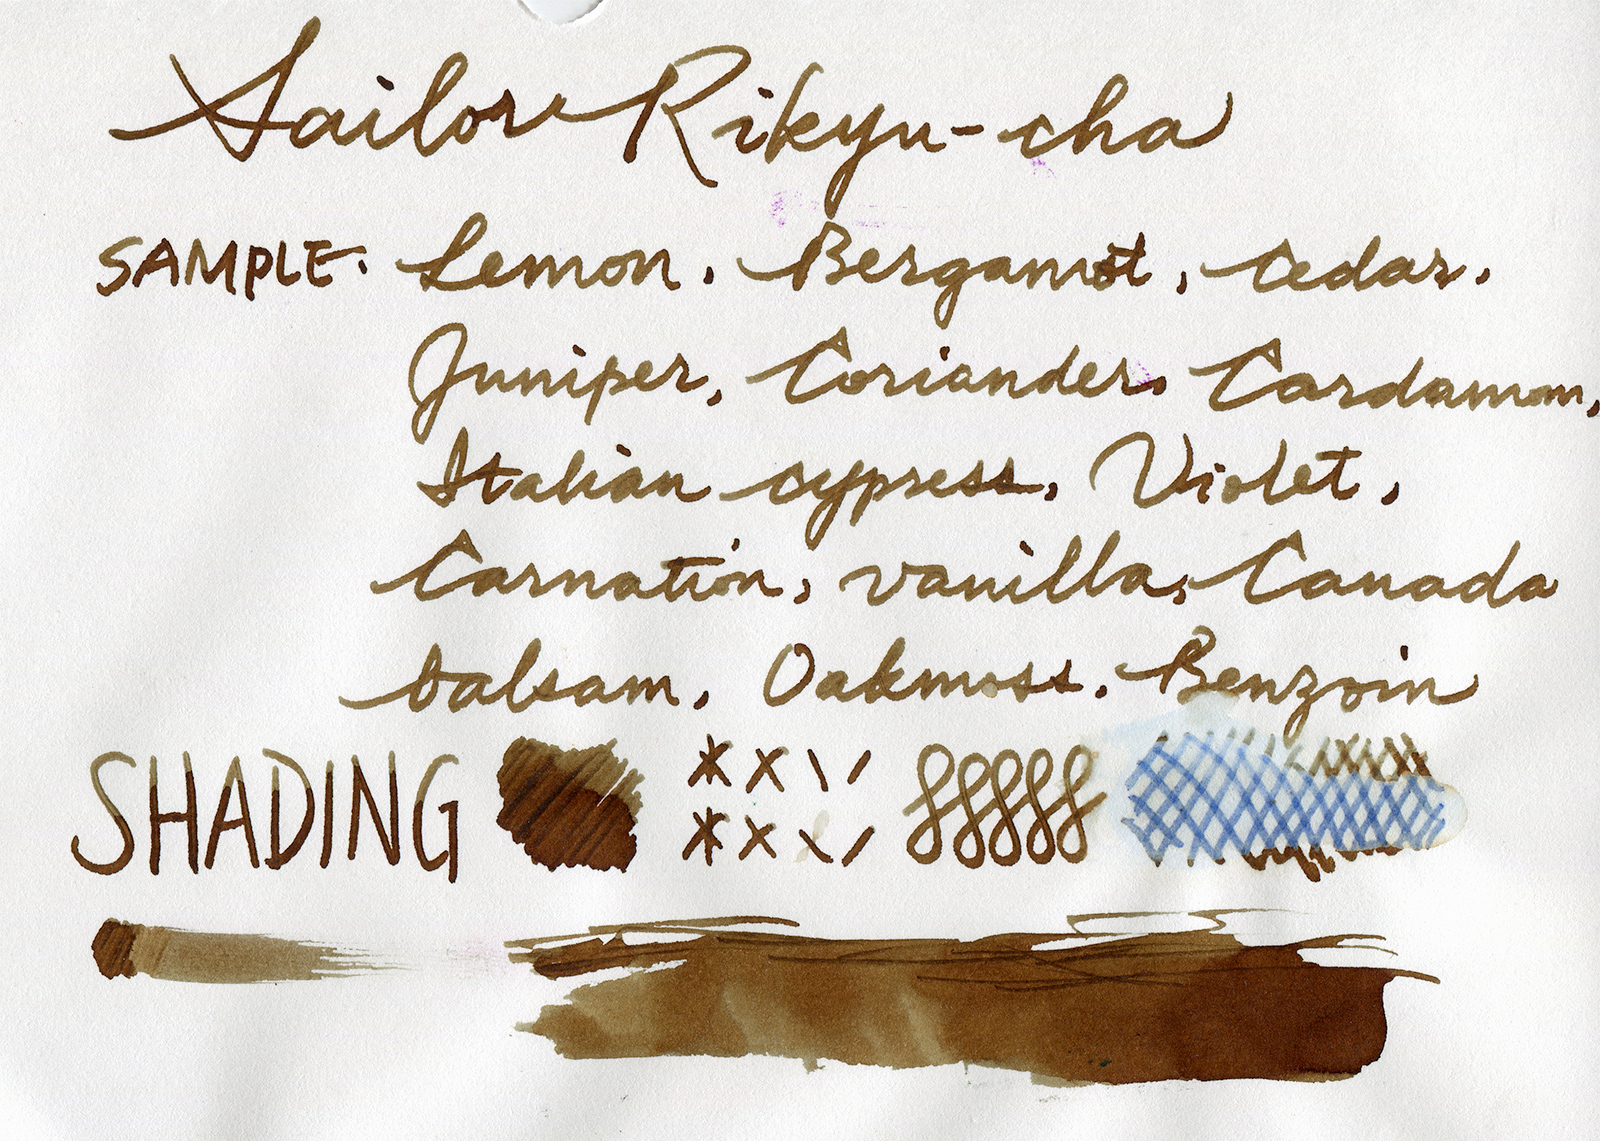 Sailor Rikyu-cha
SAMPLE. Lemon, Bergamot, Cedar,
Juniper, Coriander, Cardamom,
Italian cypress, Violet,
Carnation, vanilla, Canada
balsam, Oakmoss, Benzoin
SHADING